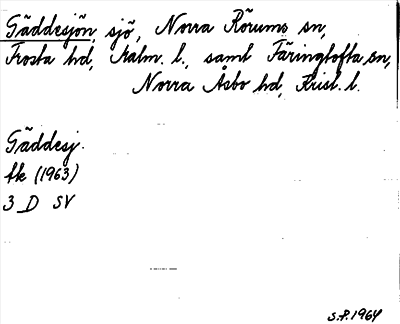 Gäddesjön, sjö, Norra Rörums sn,
Frosta hd, Malm. l., samt Färingtofta sn,
Norra Åsbo hd, Krist. l.
Gäddesj.
tk (1963)
3 D SV
S.P. 1964